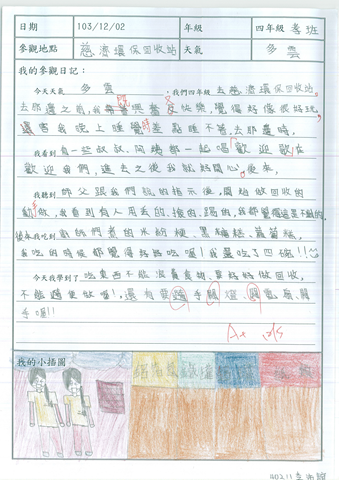 日期 103/12/02 年級 四年級 孝班
參觀地點 慈濟環保回收站 天氣 多雲
我的參觀日記：
今天天氣 多雲 ，我們四年級 去慈濟環保回收站，
去那邊之前，我 興奮 快樂，覺得好像很好玩，
還害我晚上睡覺時差點睡不著，去那邊時，
我看到 有一些叔叔、阿姨都一起唱歡迎歌
歡迎我們，進去之後我就好開心，後來，
我聽到 師父跟我們說的指示後，開始做回收的
動做，我看到有人用丟的、撿的、踢的，
後來我吃到 師們煮的 米粉 、黑輪
我吃的時候都覺得好好吃喔！我還吃了四碗!!
今天我學到了 吃東西不能浪費食物，要好好做回收，
不能隨便做喔！，還有要隨手關燈、關電風扇
手喔!!
A+
我的小插圖